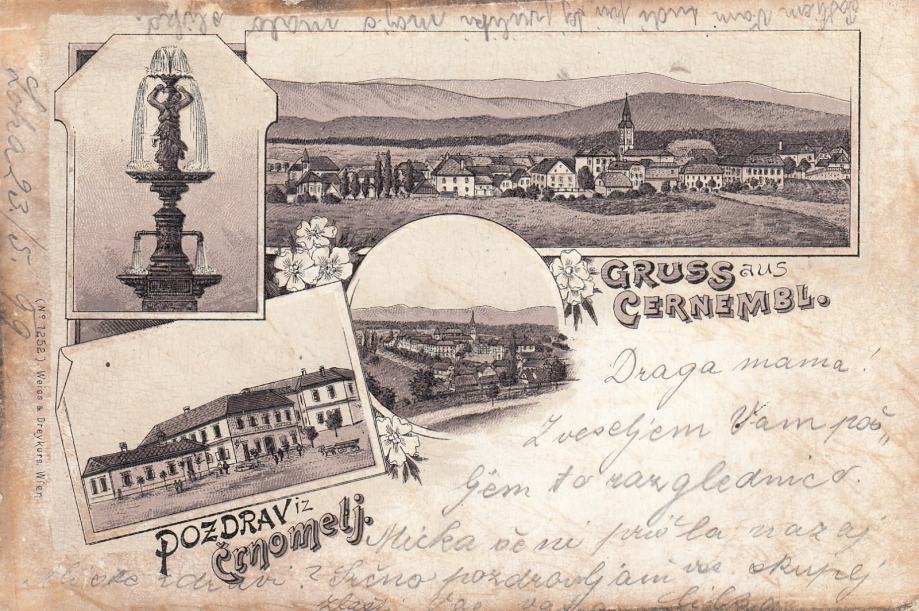 GRUSS aus
CERNEMBL.
POZDRAV iz
Črnomelj.
(Nº 1252.) Weiss & Dreykurs, Wien.
23./5. 99
Draga mama!
Z veseljem Vam poš„
ljem to razglednico.
Micka še ni prišla nazaj
zdravi? Srčno pozdravljam vse skupej